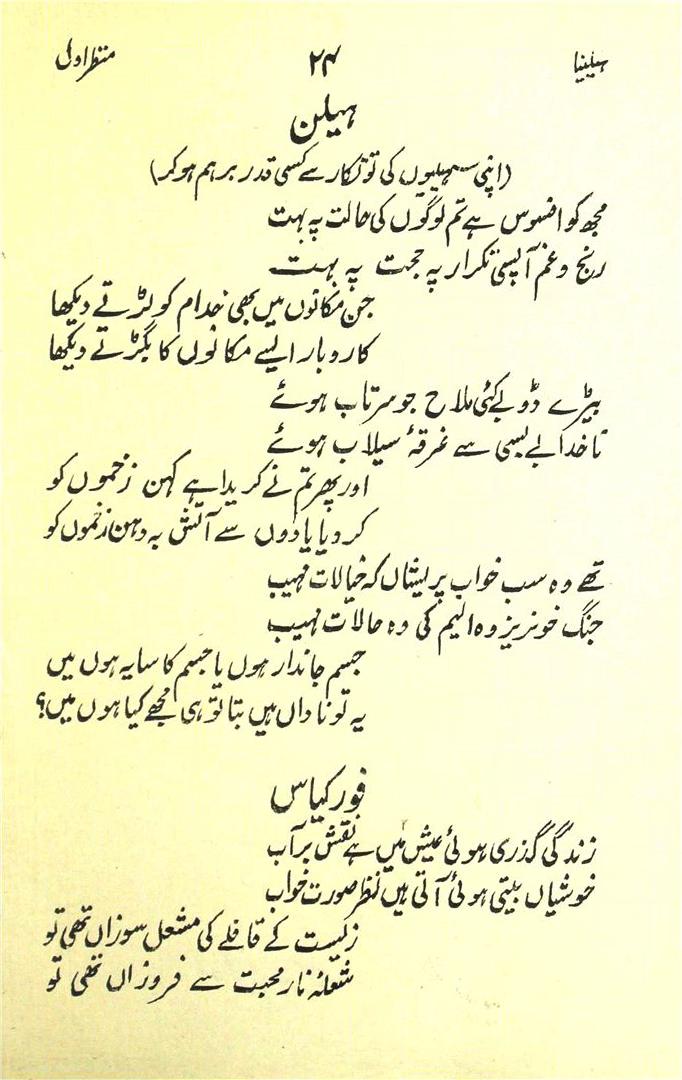 ہیلینیا ۲۴ منظر اول
ہیلن
(اپنی سہیلیوں کی تو تکار سے کسی قدر برہم ہو کر)
مجھ کو افسوس ہے تم لوگوں کی حالت پہ بہت
رنج و غم آپسی تکرار پہ حجت پہ بہت
جن مکانوں میں بھی خدام کو لڑتے دیکھا
کاروبار ایسے مکانوں کا بگڑتے دیکھا
بیڑے ڈوبے کئی ملاح جو سرتاب ہوئے
ناخدا بے بسی سے غرقۂ سیلاب ہوئے
اور پھر تم نے کریدا ہے کہن زخموں کو
کر دیا یادوں سے آتش بہ دہن زخموں کو
تھے وہ سب خواب پریشاں کہ خیالات مہیب
جنگ خونریز وہ الیم کی وہ حالات مہیب
جسم جاندار ہوں یا جسم کا سایہ ہوں میں
یہ تو ناداں ہیں بتا تو ہی مجھے کیا ہوں میں؟
فورکیاس
زندگی گذری ہوئی عیش میں ہے نقش بر آب
خوشیاں بیتی ہوئی آتی ہیں نظر صورت خواب
زیست کے قافلے کی مشعل سوزاں تھی تو
شعلۂ نار محبت سے فروزاں تھی تو